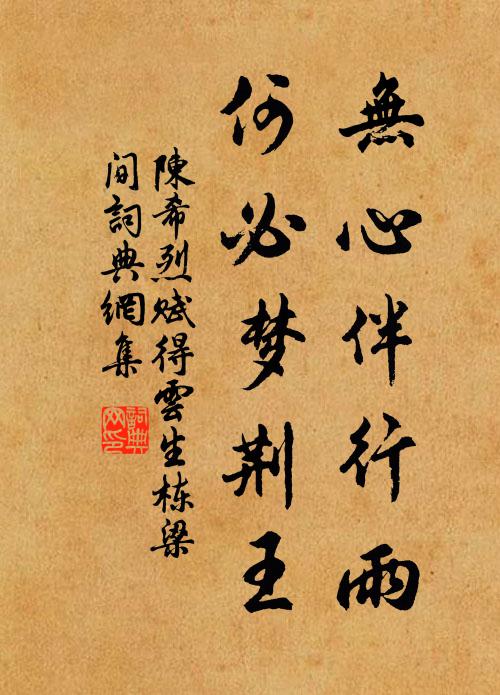 無心伴行雨
何必梦荆王
陳希烈赋得雲生栋梁
间詞典網集
詞典网印